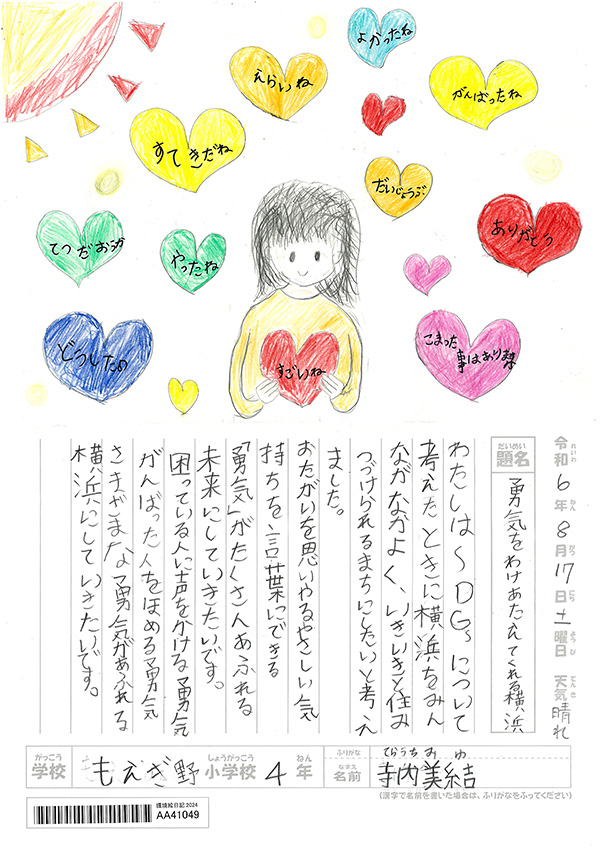 よかったね
えらいね
がんばったね
すてきだね
だいじょうぶ
ありがとう
てつだおうか
やったね
こまった
事はありませ
どうしたの
すごいね
令和6年8月17日土曜日 天気晴れ
れいわ ねん がつ にち ようび てんき
だいめい
題名
勇気をわけあたえてくれる横浜
わたしはSDGsについて
考えたときに横浜をみん
ながなかよく、いきいきと住み
つづけられるまちにしたいと考え
ました。
おたがいを思いやるやさしい気
持ちを言葉にできる
「勇気」がたくさんあふれる
未来にしていきたいです。
困っている人に声をかける勇気
がんばった人をほめる勇気
さまざまな勇気があふれる
横浜にしていきたいです。
がっこう しょうがっこう ねん
学校 もえぎ野小学校 4年
ふりがな てらうち みゆ
なまえ
名前 寺内美結
(漢字で名前を書いた場合は、ふりがなをふってください)
環境絵日記2024
AA41049